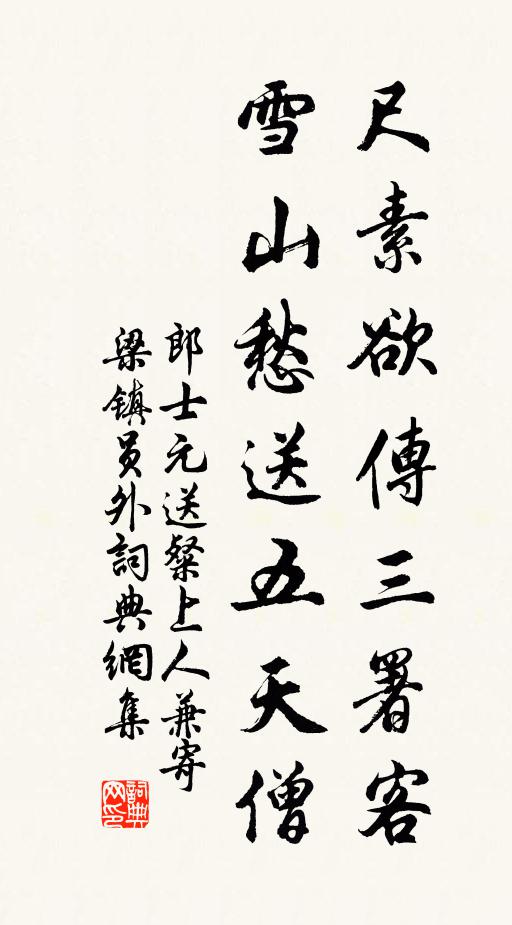 尺素欲傳三署客
雪山愁送五天僧
郎士元送粲上人兼寄
梁鎮員外詞典網集
詞典網印